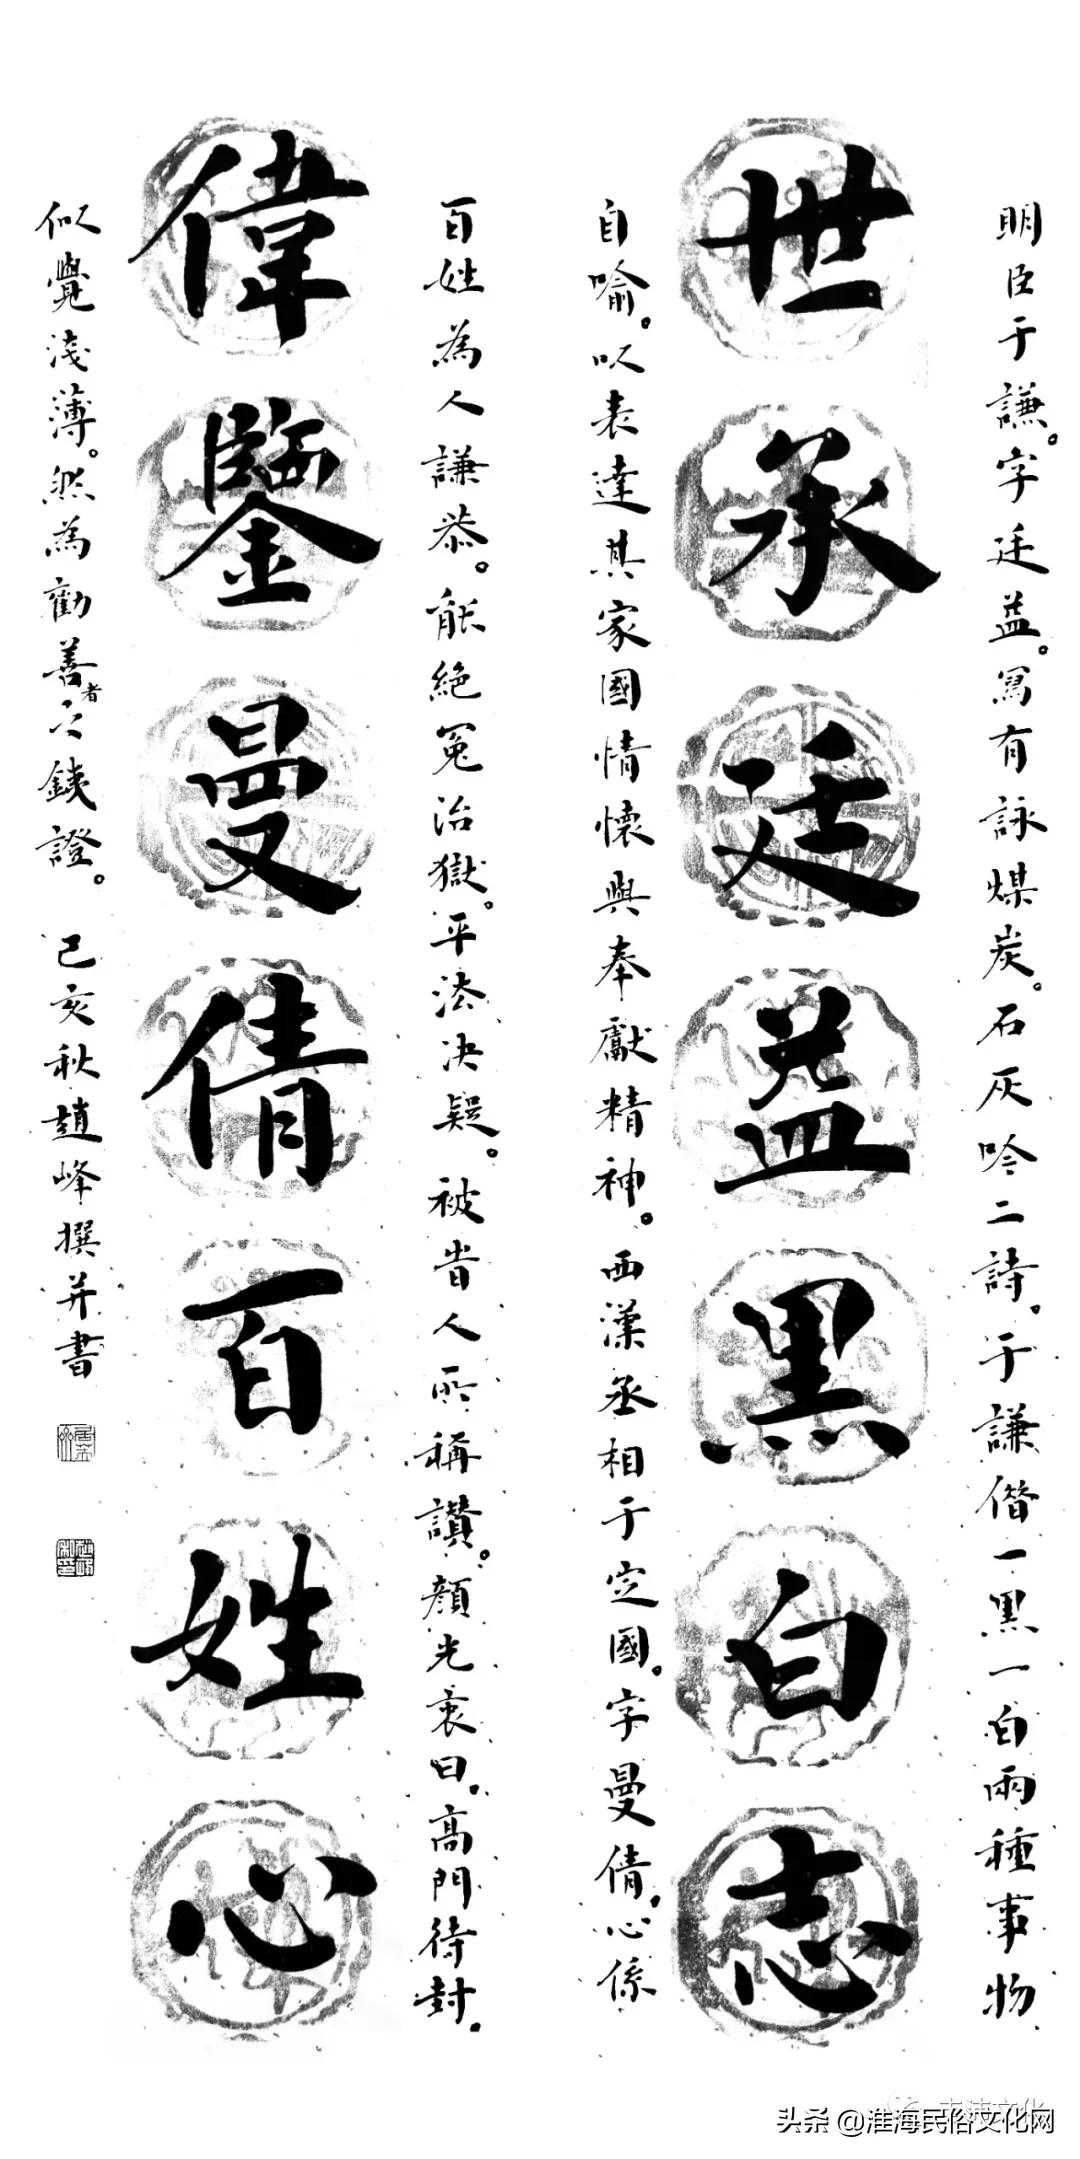 明臣于謙。字廷益。寫有詠煤炭。石灰吟二詩。于謙借一黑一白兩種事物
世承廷益黑白志
自喻。以表達其家國情懷與奉獻精神。西漢丞相于定國。字曼倩。心係
百姓為人謙恭。能絕冤治獄。平法決疑。被昔人所稱讚。顏光衷曰。高門待封。
偉鑒曼倩百姓心
似覺淺薄。然為勸善者之鐵證。己亥秋趙峰撰并書
头条 @淮海民俗文化网